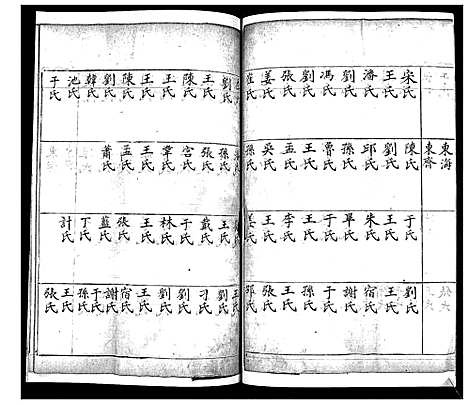 東海
東齋
宋氏 王氏 潘氏 劉氏 馮氏 劉氏 張氏 姜氏 崔氏
陳氏 劉氏 邱氏 孫氏 魯氏 王氏 孟氏 吳氏 孫氏
于氏 王氏 朱氏 畢氏 于氏 王氏 李氏 王氏 姜氏
劉氏 王氏 宿氏 謝氏 于氏 孫氏 王氏 張氏 邱氏
劉氏 王氏 陳氏 王氏 王氏 陳氏 劉氏 韓氏 池氏 于氏
孫氏 張氏 宮氏 覃氏 王氏 孟氏 蕭氏
王氏 戴氏 于氏 林氏 王氏 張氏 藍氏 丁氏 計氏
王氏 劉氏 刁氏 劉氏 劉氏 宿氏 謝氏 于氏 孫氏 王氏 張氏